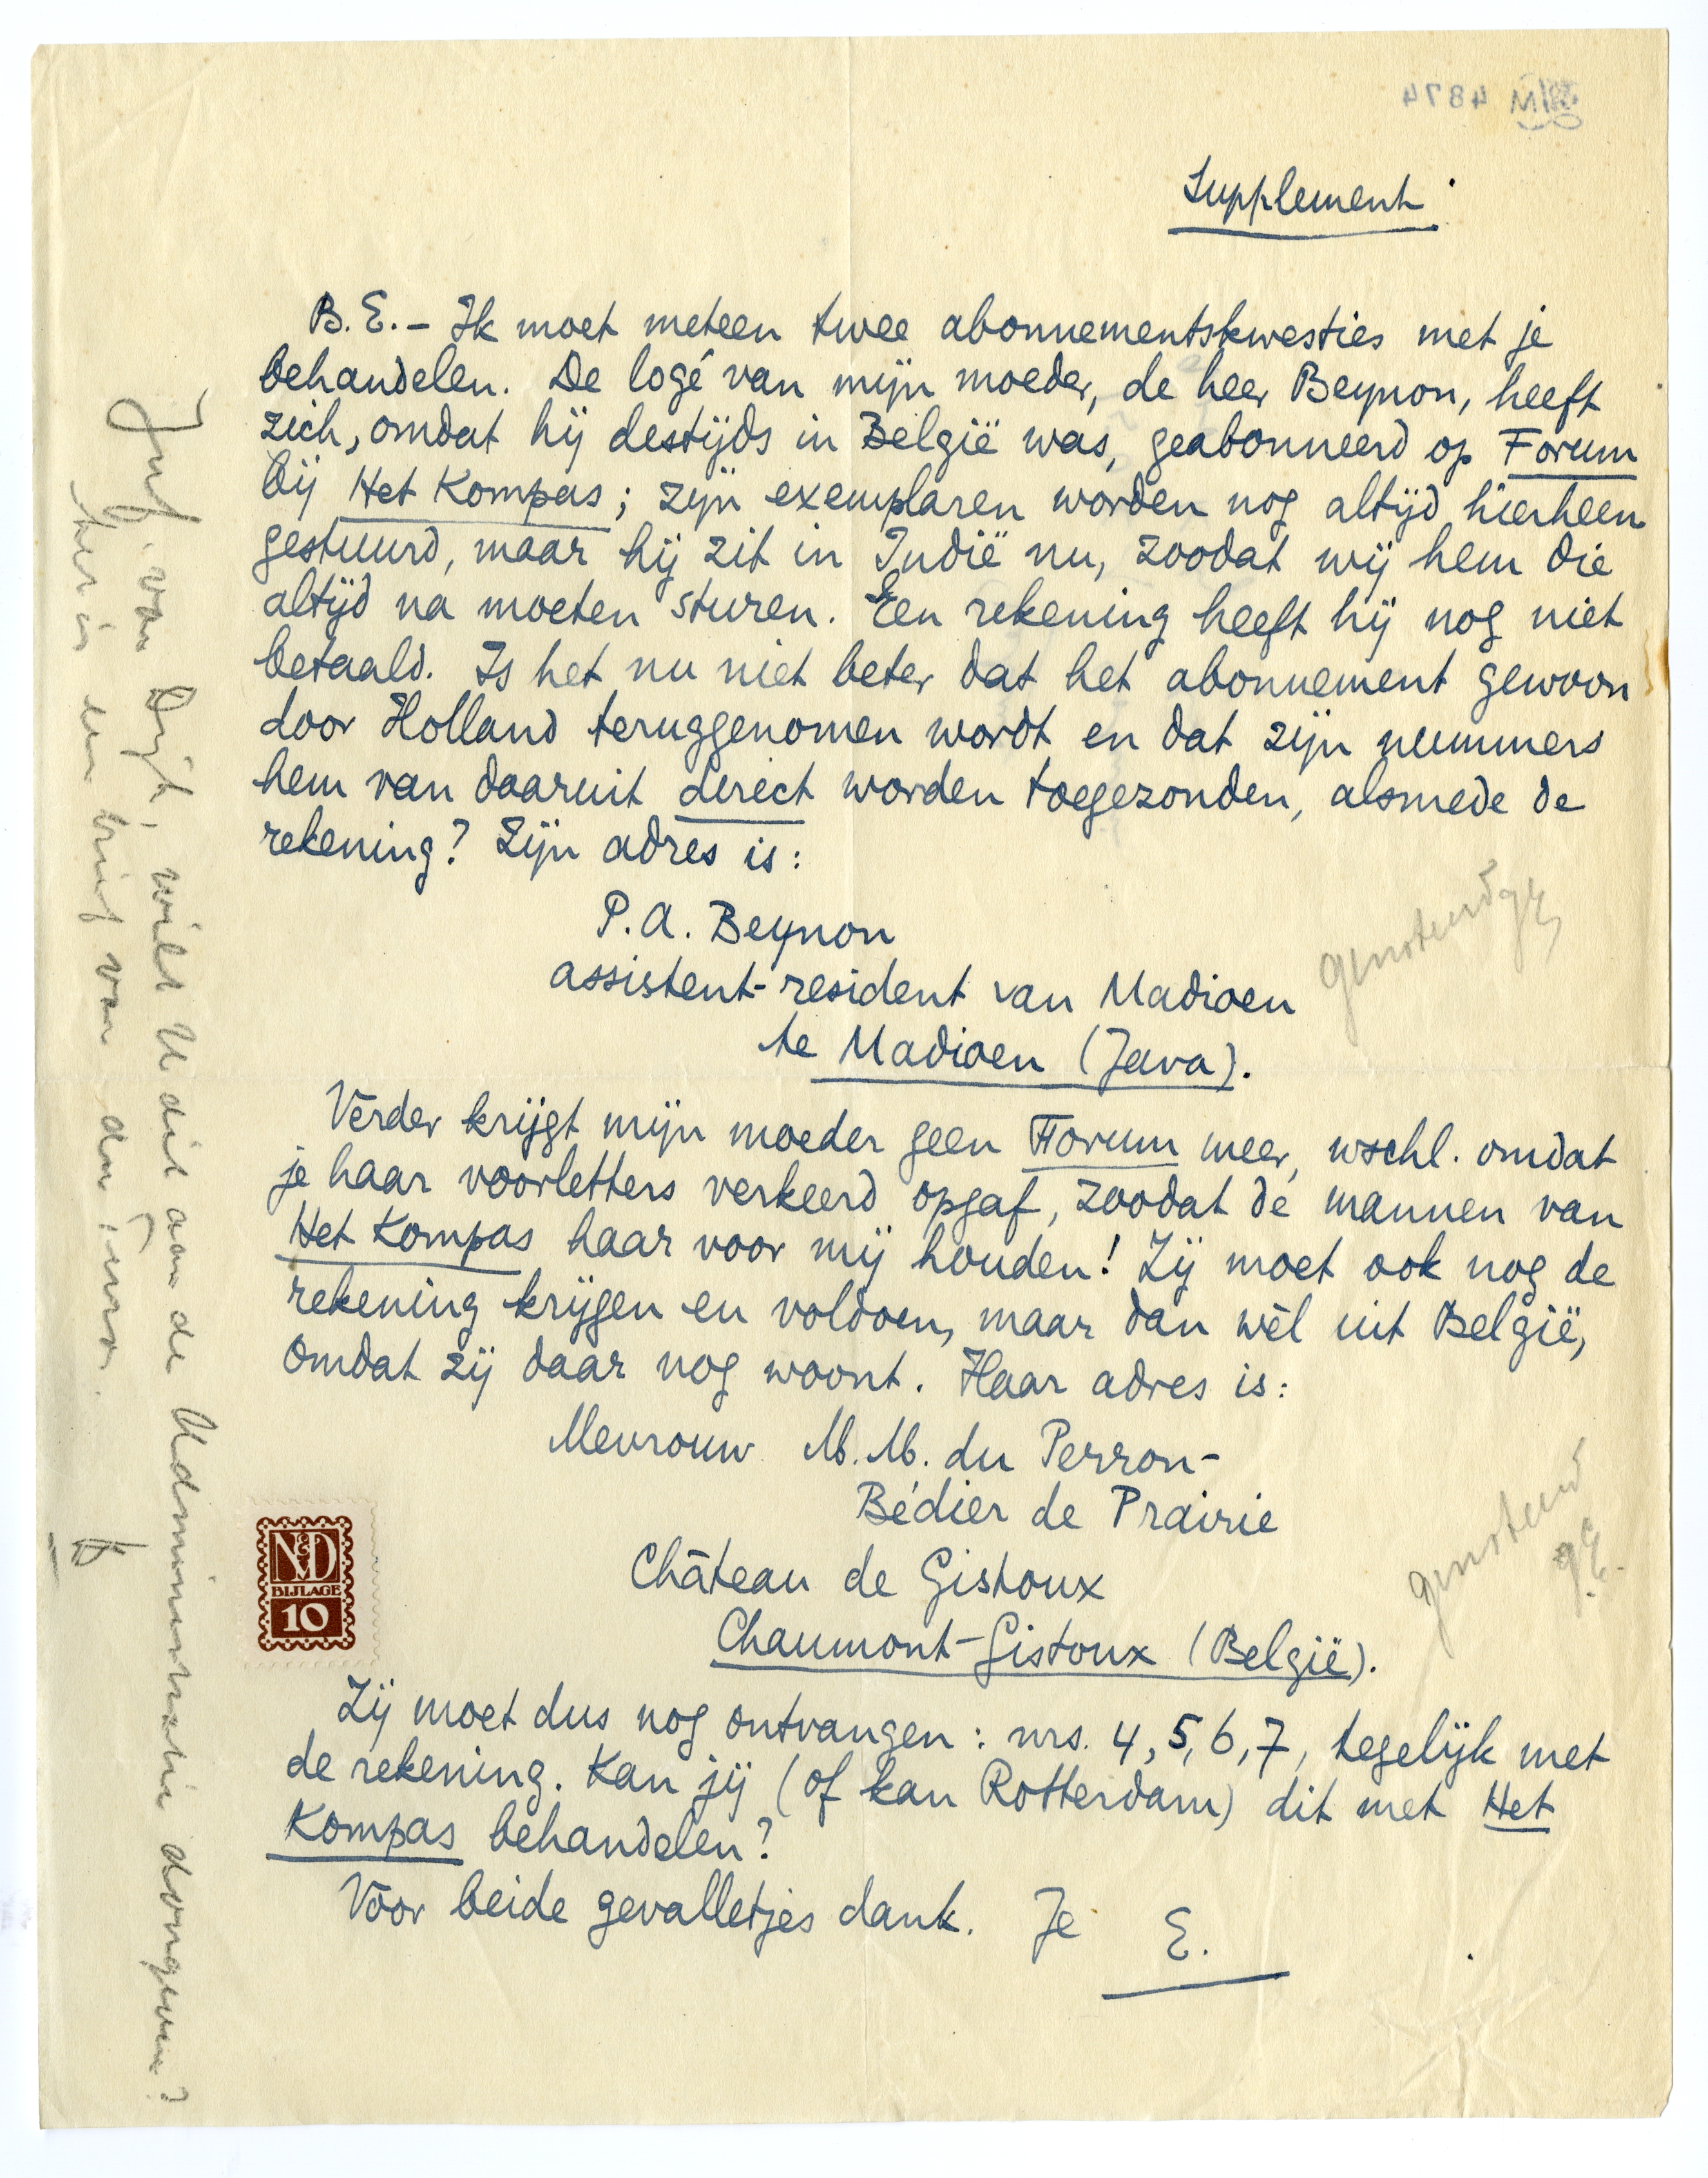 Supplement.
B.E. – Ik moet meteen twee abonnementskwesties met je
behandelen. De logé van mijn moeder, de heer Beynon, heeft
zich, omdat hij destijds in België was, geabonneerd op Forum
bij Het Kompas; zijn exemplaren worden nog altijd hierheen
gestuurd, maar hij zit in Indië nu, zoodat wij hem die
altijd na moeten sturen. Een rekening heeft hij nog niet
betaald. Is het nu niet beter dat het abonnement gewoon
door Holland teruggenomen wordt en dat zijn nummers
hem van daaruit direct worden toegezonden, alsmede de
rekening? Zijn adres is:
P.A. Beynon
assistent-resident van Madioen
te Madioen (Java).
genoteerd gE
Verder krijgt mijn moeder geen Forum meer, wschl. omdat
je haar voorletters verkeerd opgaf, zoodat de mannen van
Het Kompas haar voor mij houden! Zij moet ook nog de
rekening krijgen en voldoen, maar dan wèl uit België,
omdat zij daar nog woont. Haar adres is:
Mevrouw M.M. du Perron-
Bédier de Prairie
Château de Gistoux
Chaumont-Gistoux (België).
genoteerd
gE.
N&D
BIJLAGE
10
Zij moet dus nog ontvangen: nrs. 4, 5, 6, 7, tegelijk met
de rekening. Kan jij (of kan Rotterdam) dit met Het
Kompas behandelen?
Voor beide gevalletjes dank. Je E.
Juf. van Dijk, wilt U dit aan de Administratie doorgeven?
het is een brief van du Perron.
4874